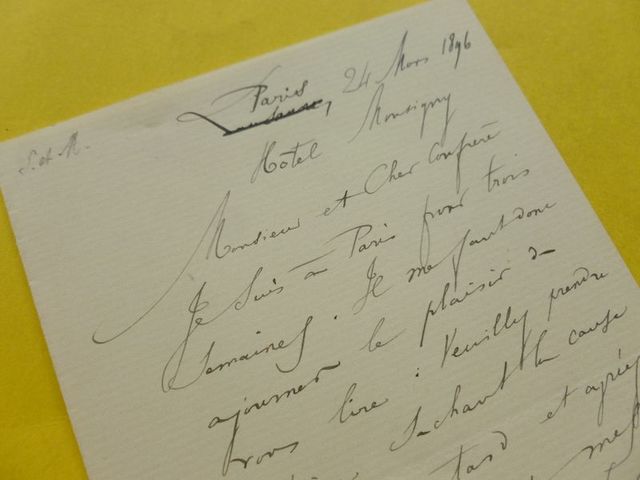 S. et M.
Paris
Lausanne, 24 Mars 1896
Hôtel Monsigny
Monsieur et Cher Confrère
Je suis à Paris pour trois
semaines. Il me faut donc
ajourner le plaisir de
vous lire : Veuilly prendre
sachant la cause
tard et agrée
mes